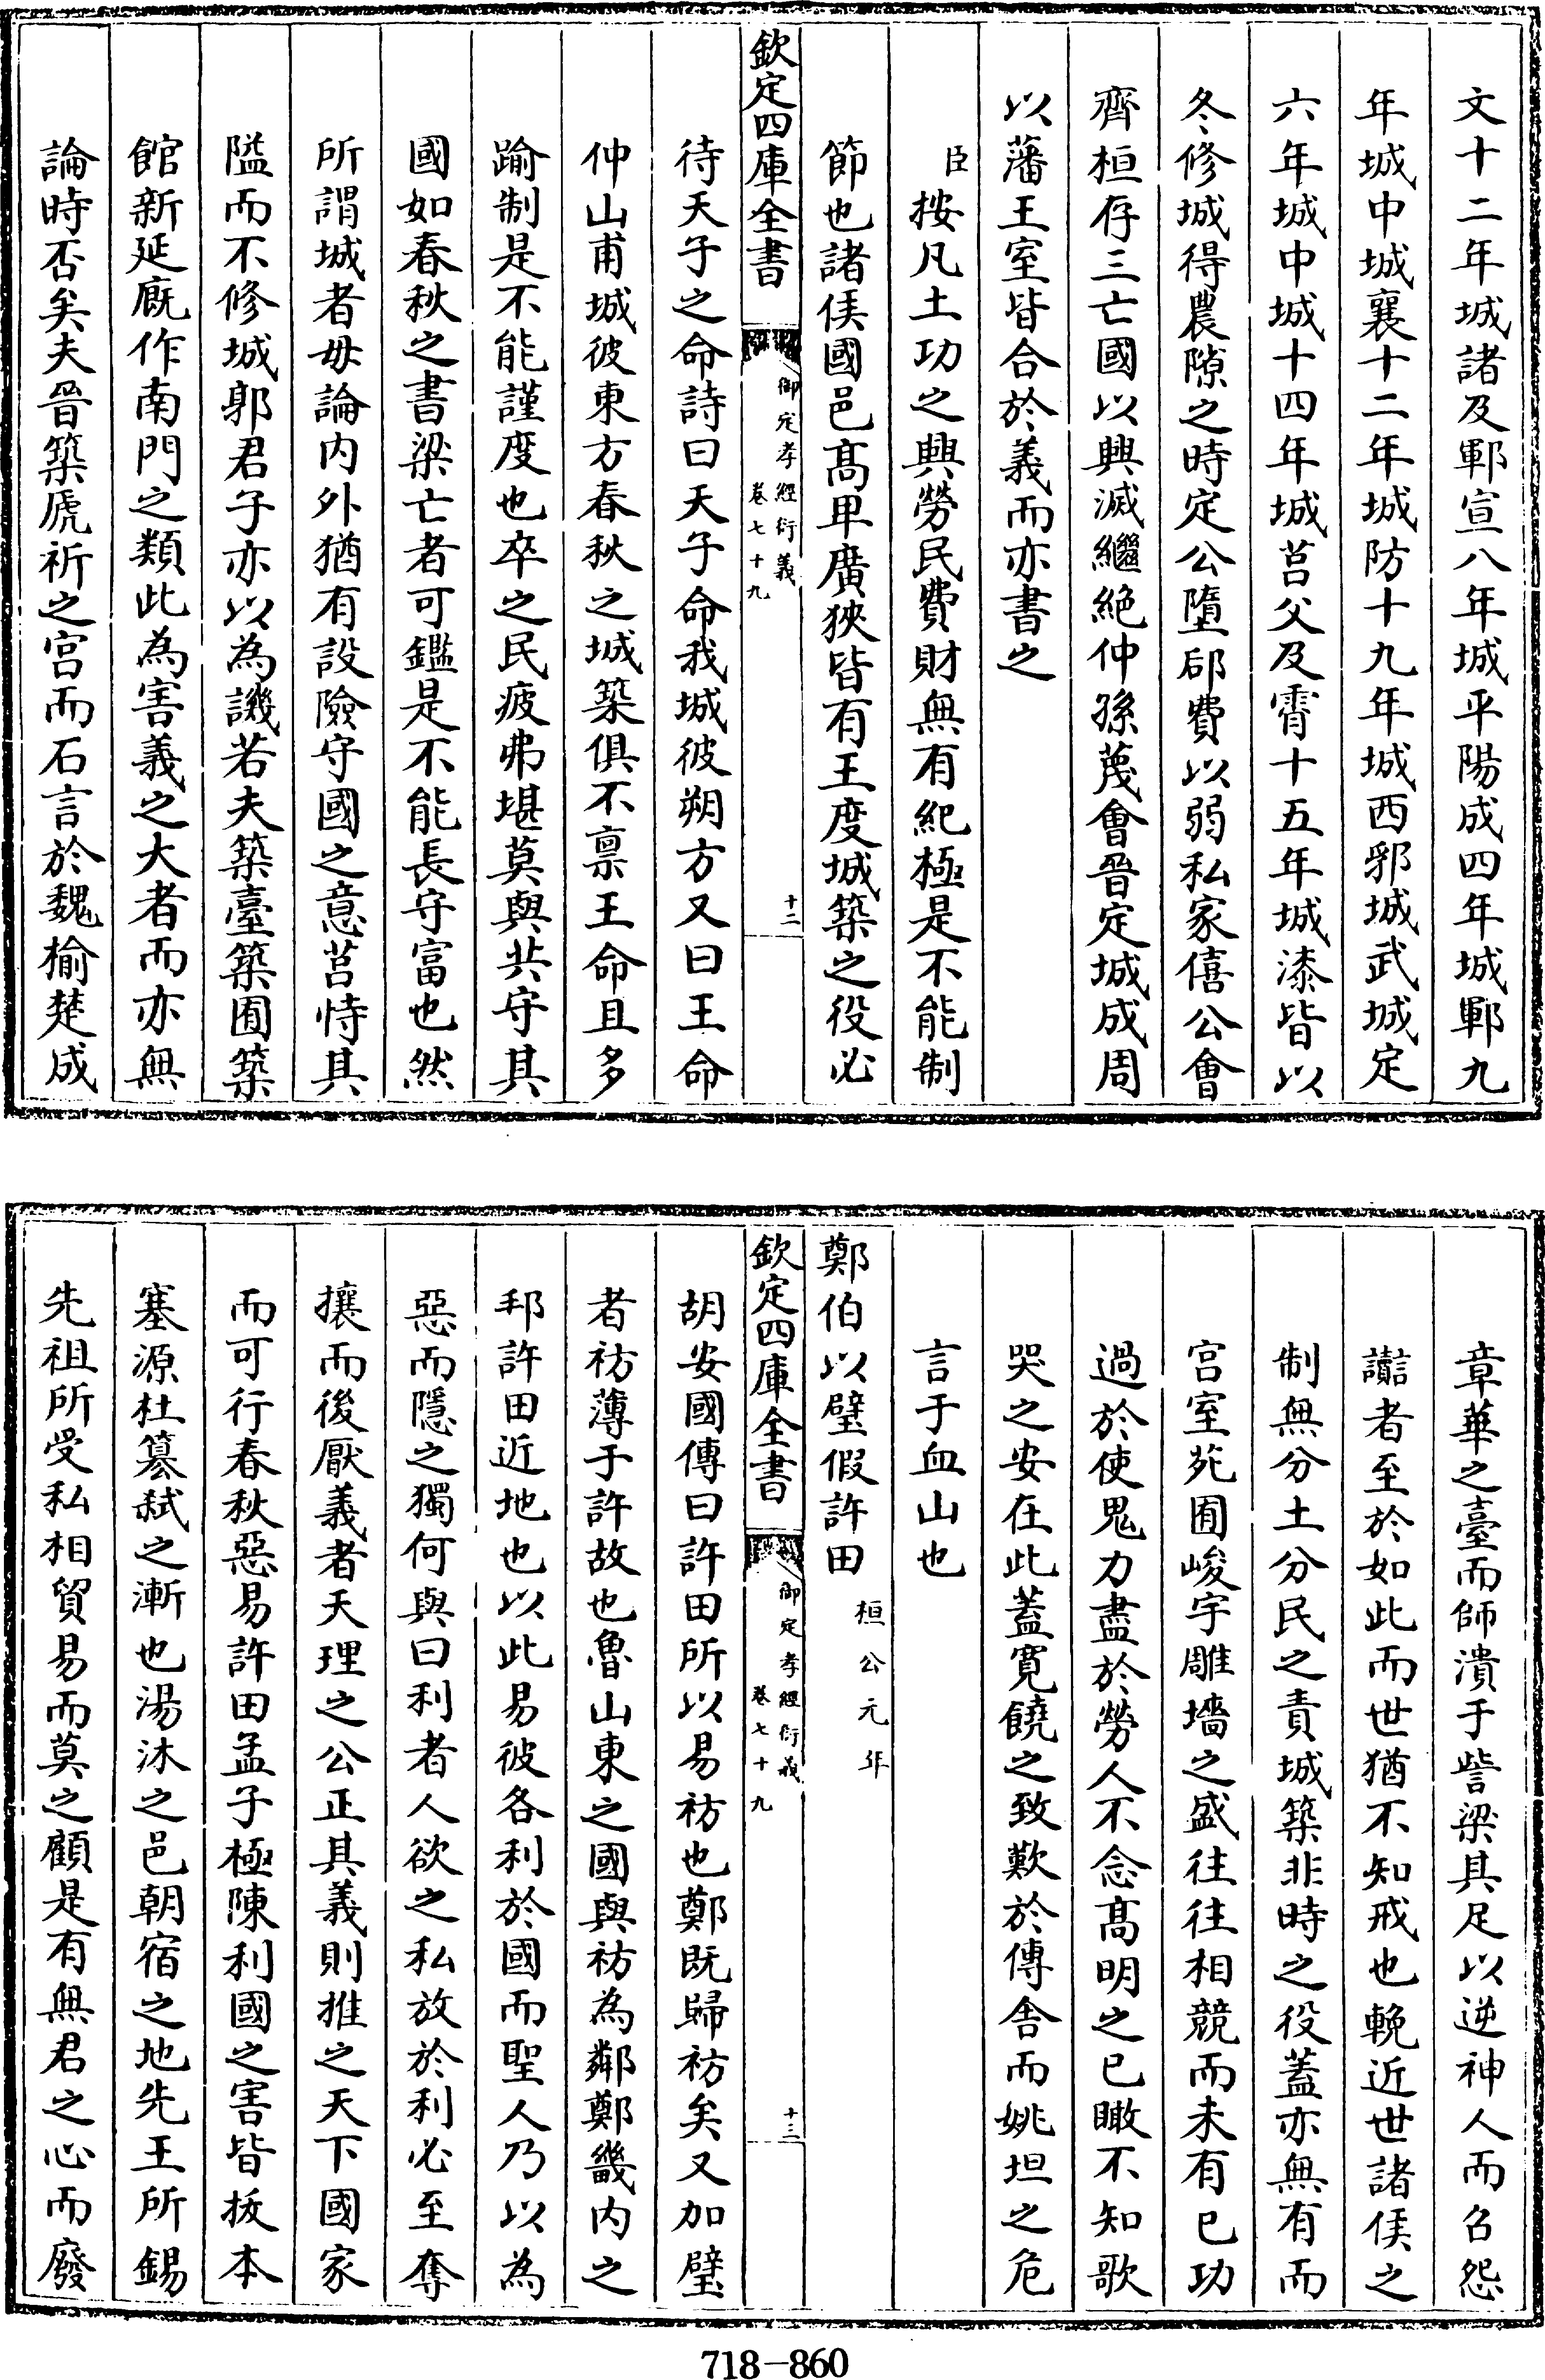 文十二年城諸及鄆宣八年城平陽成四年城鄆九
年城中城襄十二年城防十九年城西郛城武城定
六年城中城十四年城莒父及霄十五年城漆皆以
冬修城得農隙之時定公墮郈費以弱私家僖公會
齊桓存三亡國以興滅繼絶仲孫蔑會晉定城成周
以藩王室皆合於義而亦書之
臣按凡土功之興勞民費財無有紀極是不能制
節也諸侯國邑髙卑廣狹皆有王度城築之役必
欽定四庫全書
御定孝經衍義
卷七十九
十二
待天子之命詩曰天子命我城彼朔方又曰王命
仲山甫城彼東方春秋之城築俱不禀王命且多
踰制是不能謹度也卒之民疲弗堪莫與共守其
國如春秋之書梁亡者可鑑是不能長守富也然
所謂城者毋論内外猶有設險守國之意莒恃其
隘而不修城郭君子亦以為譏若夫築臺築囿築
館新延廐作南門之類此為害義之大者而亦無
論時否矣夫晉築虒祈之宫而石言於魏榆楚成
章華之臺而師潰于訾梁其足以逆神人而召怨
讟者至於如此而世猶不知戒也輓近世諸侯之
制無分土分民之責城築非時之役蓋亦無有而
宫室苑囿峻宇雕墻之盛往往相競而未有已功
過於使鬼力盡於勞人不念髙明之已瞰不知歌
哭之安在此蓋寛饒之致歎於傳舍而姚坦之危
言于血山也
鄭伯以璧假許田桓公元年
欽定四庫全書
御定孝經衍義
卷七十九
十三
胡安國傳曰許田所以易祊也鄭既歸祊矣又加璧
者祊薄于許故也魯山東之國與祊為鄰鄭畿内之
邦許田近地也以此易彼各利於國而聖人乃以為
惡而隱之獨何與曰利者人欲之私放於利必至奪
攘而後厭義者天理之公正其義則推之天下國家
而可行春秋惡易許田孟子極陳利國之害皆拔本
塞源杜簒弑之漸也湯沐之邑朝宿之地先王所錫
先祖所受私相貿易而莫之顧是有無君之心而廢
718-860